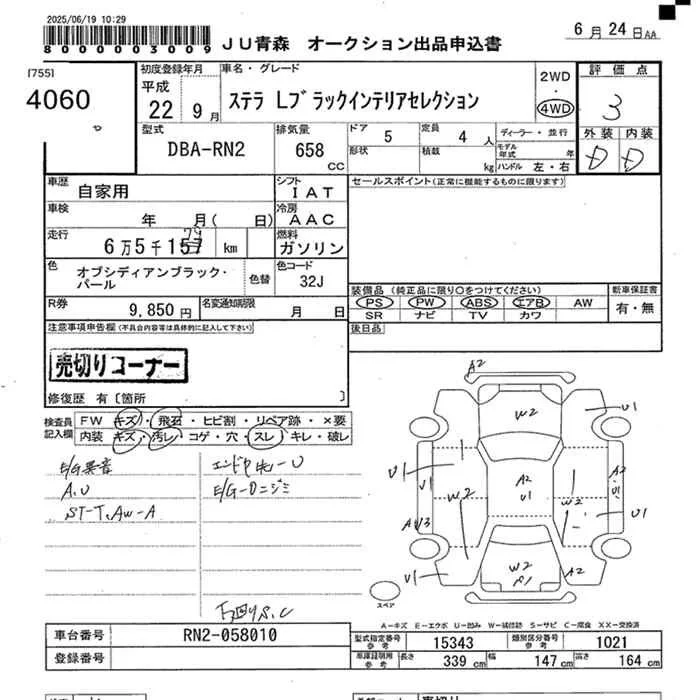 2025/06/19 10:29
8000003009
JU青森 オークション出品申込書
6月 24日AA
[755]
4060
初度登録年月
平成
22 9月
車名・グレード
ステラ Lブラックインテリアセレクション
2WD
・
4WD
評価点
3
型式
DBA-RN2
排気量
658
CC
ドア 5
定員 4 人
形状
積載 kg
ディーラー・並行
モデル年式 年
ハンドル 左・右
外装 内装
D D
車歴
自家用
シフト
IAT
セールスポイント(正常に機能するものに限ります)
車検
年 月( 日)
冷房
AAC
走行
6万5千157 km
79
燃料
ガソリン
色
オブシディアンブラック・パール
色替
色コード
32J
装備品(純正品に限り○をつけてください)
PS PW ABS エアB AW
SR ナビ TV カワ
新車保証書
有・無
R券
9,850円
名変通知期限
月 日
後日品
注意事項申告欄(不具合内容等は具体的に記入して下さい)
売切りコーナー
修復歴 有〔箇所 〕
検査員記入欄
FW キズ・飛石・ヒビ割・リペア跡・×要
内装 キズ・汚レ・コゲ・穴・スレ・キレ・破レ
E/G異音
A.U
ST-T.AW-A
エンドP先-U
E/G-Oニジミ
下廻りS.C
A2
W2
U1
A2
U1
U1
U1
W2
A2
U1
W2
U1
U1
W2
P1
A2
スペア
A-キズ E-エクボ U-凹み W-補修跡 S-サビ C-腐食 XX-交換済
車台番号
RN2-058010
型式指定番号
参考
15343
類別区分番号
参考
1021
登録番号
車庫証明用
参考
長さ 339 cm
幅 147 cm
高さ 164 cm